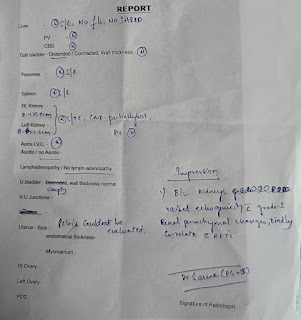 REPORT
Liver - (N) S/E, NO f.l., NO IHBRD
PV - (N)
CBD (N)
Gall bladder - Distended / Contracted, Wall thickness (N)
Pancreas - (N) S/E
Spleen - (N) S/E
Rt. Kidney -
Left Kidney - (N) S/E, CMD partially lost
B/L (N)
Aorta I.V.C. - (N)
Ascitis / no Ascitis -
Lymphadenopathy / No lymph-adenopathy
U.Bladder - Distended, wall thickness normal
empty
V.U Junctions -
Pelvis couldn't be
Uterus - Size - evaluated.
endometrial thickness-
Myometrium -
Rt Ovary
Left Ovary
POD :
Impression
B/L kidneys
raised echogenicity c grade I
Renal parenchymal changes, kindly
Correlate c RFTs.
Signature of Radiologist